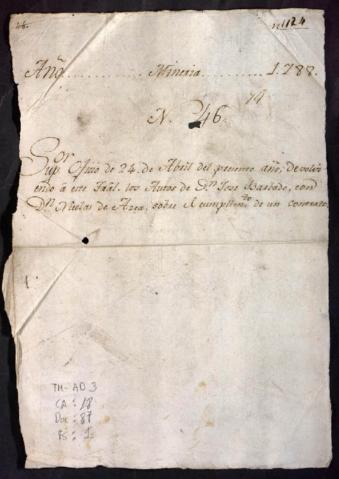 46.
Año Mineria 1.788.
N. 46
Sup.or Ofizio de 24. de Abril del presente año, devolvi
endo â este Tral. los Autos de Dn. Jose Barbado, con
Dn. Nicolas de Arza, sobre el cumplim.to de un contrato.
TM-AD 3
CA: 18
Doc: 87
FS: 1